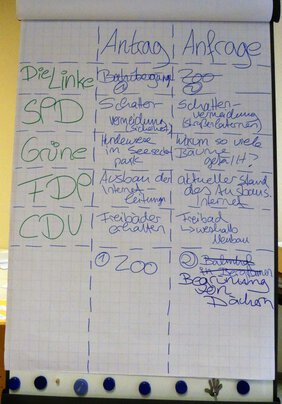 Antrag Anfrage
Die Linke Bahnübergang Zoo
① ②
SPD Schatten- Schatten-
vermeidung vermeidung
(Straßenlaternen)
Grüne Hundewiese Warum so viele
im Seeseck- Bäume
park gefällt?
FDP Ausbau der aktueller Stand
Internet- des Ausbaus
leitungen Internet
CDU Freibäder Freibad
erhalten → weshalb
Neubau
① Zoo ② Bahnhof
Begrünung
von
Dächern